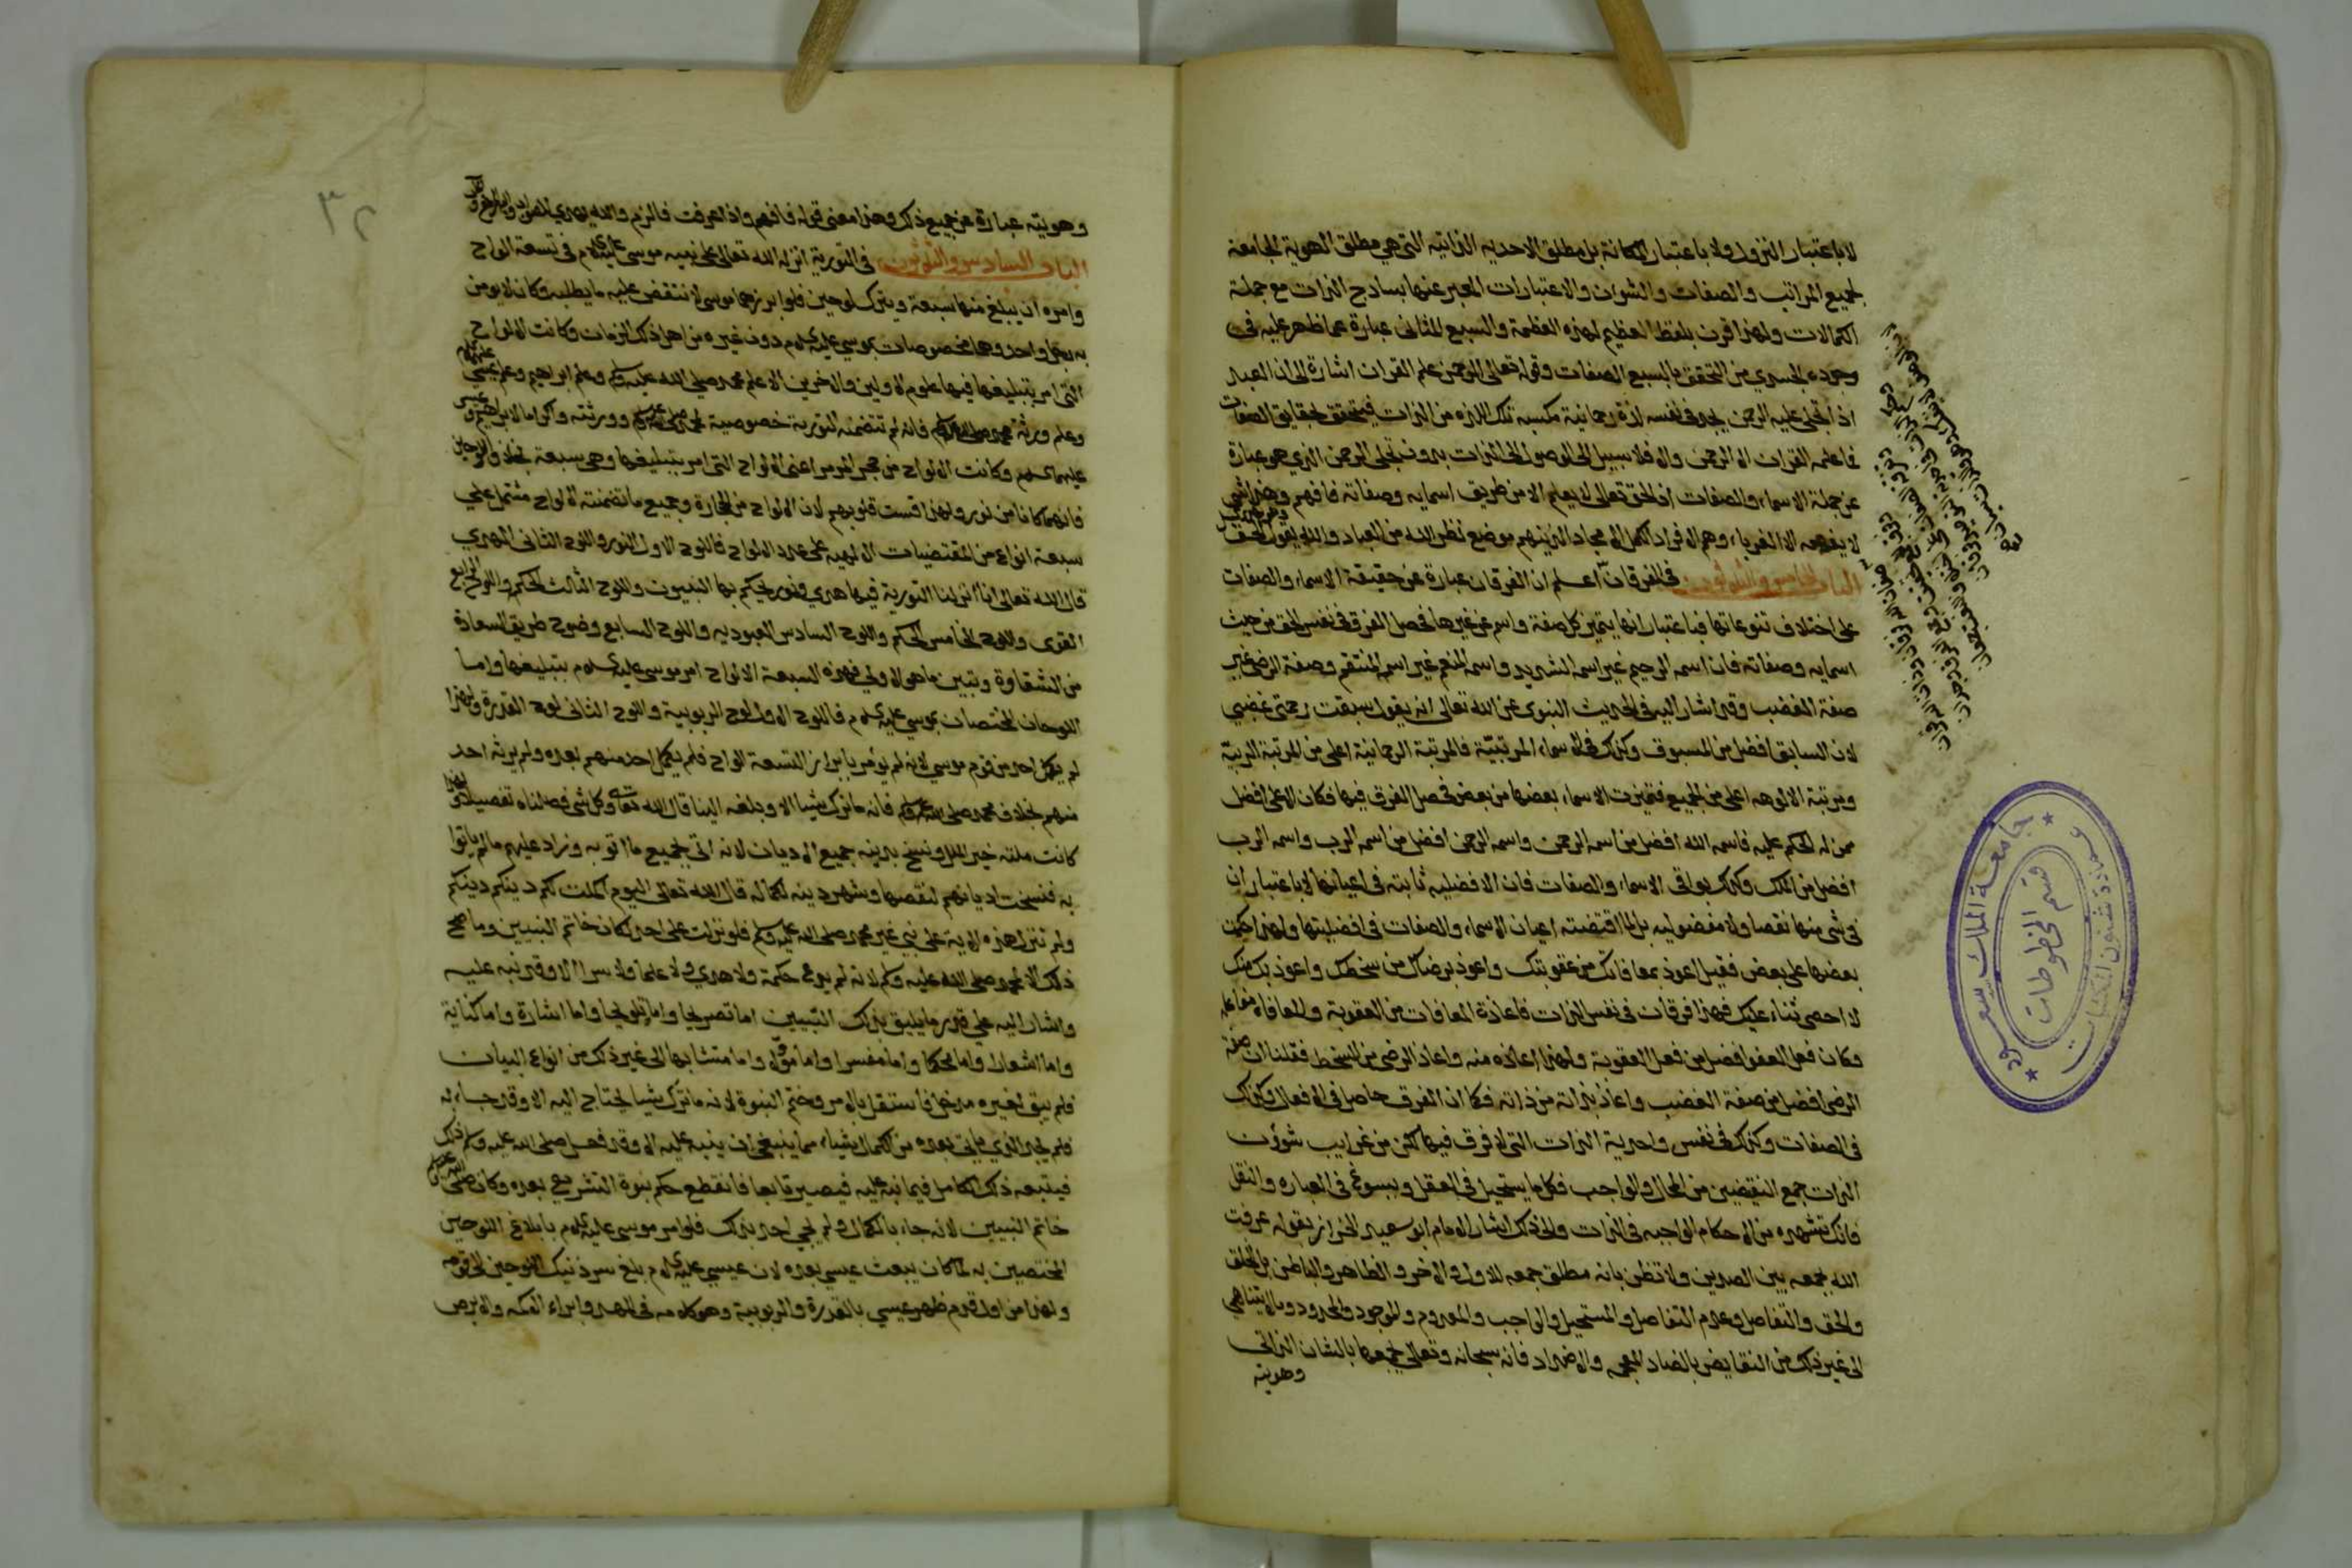 لا باعتبار النزول ولا باعتبار المكانة بل مطلق الاحدية الذاتية التي هي مطلق الهوية الجامعة
لجميع المراتب والصفات والشوان والاعتبارات المعبر عنها بساذج الذات مع جملة
الكمالات ولهذا قرن بلفظ العظيم لهذه العظمة والسبع المثاني عبارة عما ظهر عليه في
وجوده الجسدي من التحقق بالسبع الصفات وقوله تعالى الرحمن علم القران اشارة الى ان العبد
اذا تجلى عليه الرحمن يجد في نفسه لذة رحمانية مكسبه تلك اللذه من الذات فيتحقق بحقايق الصفات
فما علمه القران الا الرحمن والا فلا سبيل الى الوصول الى الذات بدون تجلي الرحمن الذي هو عبارة
عن جملة الاسماء والصفات اذ الحق تعالى لا يعلم الا من طريق اسمايه وصفاته فافهم وهذا شي
لا يفهمه الا الغرباء وهم الافراد الكمل الامجاد الذينهم موضع نظر الله من العباد والله يقول الحق
الباب الخامس والثلاثون في الفرقان اعلم ان الفرقان عبارة عن حقيقة الاسماء والصفات
على اختلاف تنوعاتها فباعتباراتها يتميز كل صفة واسم عن غيرها فحصل الفرق في نفس الحق من حيث
اسمايه وصفاته فان اسمه الرحيم غير اسمه الشديد واسمه المنعم غير اسمه المنتقم وصفة الرضى غير
صفة الغضب وقد اشار اليه في الحديث النبوي عن الله تعالى انه يقول سبقت رحمتي غضبي
لان السابق افضل من المسبوق وكذلك في الاسماء المرتبتيّة فالمرتبة الرحمانية اعلى من المرتبة الربيّة
ومرتبة الالوهه اعلى من الجميع فتميزت الاسماء بعضها من بعض فحصل الفرق فيها فكان الاعلى افضل
ممن له الحكم عليه فاسمه الله افضل من اسمه الرحمن واسمه الرحمن افضل من اسمه الرب واسمه الرب
افضل من الملك وكذلك بواقي الاسماء والصفات فان الافضليه ثابته في اعيانها لا باعتبار ان
في شي منها نقصا ولا مفضوليه بل لما اقتضته اعيان الاسماء والصفات في افضليتها ولهذا حكمت
بعضها على بعض فقيل اعوذ بمعافاتك من عقوبتك واعوذ برضاك من سخطك واعوذ بك منك
لا احصى ثناء عليك فهذا فرقان في نفس الذات فاعاذة المعافات من العقوبة والمعافاه مفاعله
وكان فعل العفو افضل من فعل العقوبة ولهذا اعاذه منه واعاذ الرضى من السخط فقلنا ان صفة
الرضى افضل من صفة الغضب واعاذ بذاته من ذاته فكما ان الفرق حاصل في الافعال وكذلك
في الصفات وكذلك في نفس واحدية الذات التي لا فرق فيها لكن من غرايب شؤن
الذات جمع النقيضين من المحال والواجب فكل ما يستحيل في العقل ويسوغ في العباره والنقل
فانك تشهده من الاحكام الواجبه في الذات والى ذلك اشار الامام ابو سعيد الخراز بقوله عرفت
الله بجمعه بين الضدين ولا تظن بانه مطلق جمعه للاول والاخر والظاهر والباطن بل الخلق
والحق والتفاصل وعدم التفاصل والمستحيل والواجب والمعدوم والموجود والمحدود وما لا يتناهى
الى غير ذلك من النقايض بالضاد المعجمه والاضداد فانه سبحانه وتعالى يجمعها بالشان الذاتي
وهويته
جامعة الملك سعود
عمادة شئون المكتبات
قسم المخطوطات
٣٢
وهويته عبارة عن جميع ذلك وهذا معنى قوله فافهم واذا عرفت فالزم والله يهدي للصواب
الباب السادس والثلاثون في التورية انزل الله تعالى على نبيه موسى عليه السلام في تسعة الواح
وامره ان يبلغ منها سبعة ويترك لوحين فلو ابرزهما موسى لانتقض عليه ما يطلبه وكان لا يومن
به رجل واحد وهما مخصوصات بموسى عليه السلام دون غيره من اهل ذلك الزمان وكانت الالواح
التي امر بتبليغها فيها علوم الاولين والاخرين الا علم محمد صلى الله عليه وسلم وعلم ابراهيم وعلم عيسى
وعلم ورثة محمد صلى الله عليه وسلم فانه لم تتضمنه التورية خصوصية لمحمد صلى الله عليه وسلم وورثته واكراما لابراهيم وعيسى
عليهما السلام وكانت الالواح من حجر المرمر اعني الالواح التي امر بتبليغها وهي سبعة بخلاف اللوحين
فانهما كانا من نور ولهذا قست قلوبهم لان الالواح من الحجارة وجميع ما تضمنته الالواح مشتمل على
سبعة انواع من المقتضيات الالهيه على عدد الالواح فاللوح الاول النور واللوح الثاني الهدى
قال الله تعالى انا انزلنا التورية فيها هدى ونور يحكم بها النبيون واللوح الثالث الحكمه واللوح الرابع
القوى واللوح الخامس الحكم واللوح السادس العبوديه واللوح السابع وضوح طريق السعادة
من الشقاوة وتبين ما هو الاولى فهذه السبعة الالواح امر موسى عليه السلام بتبليغها واما
اللوحان المختصات بموسى عليه السلام فاللوح الاول لوح الربوبية واللوح الثاني لوح القدرة ولهذا
لم يكمل احد من قوم موسى لانه لم يؤمر بابراز التسعة الواح فلم يكمل احد منهم بعده ولم يرثه احد
منهم بخلاف محمد صلى الله عليه وسلم فانه ما ترك شيا الا وبلغه الينا قال الله تعالى وكل شي فصلناه تفصيلا ولهذا
كانت ملته خير الملل ونسخ بدينه جميع الاديان لانه اتى بجميع ما اتوا به وزاد عليهم ما لم ياتوا
به فنسخت اديانهم لنقصها وشهر دينه لكماله قال الله تعالى اليوم اكملت لكم دينكم دينكم
ولم تنزل هذه الاية على نبي غير محمد صلى الله عليه وسلم فلو نزلت على احد لكان خاتم النبيين وما صح
ذلك الا لمحمد صلى الله عليه وسلم لانه لم يدع حكمة ولا هدى ولا علما ولا سرا الا وقد نبه عليه
واشار اليه على قدر ما يليق بذلك التبيين اما تصريحا واما تلويحا واما اشارة واما كناية
واما استعارة واما محكما واما مفسرا واما مؤلا واما متشابها الى غير ذلك من انواع البيان
فلم يبق لغيره مدخل فاستقل بالامر وختم النبوة لانه ما ترك شيا يحتاج اليه الا وقد جاء به
فلم يجد الذي ياتي بعده من الكمال شياء مما ينبغي ان ينبه عليه الا وقد فعل صلى الله عليه وسلم ذلك
فيتبعه ذلك الكامل فيما نبه عليه فيصير تابعا فانقطع حكم نبوة التشريع بعده وكان صلى الله عليه وسلم
خاتم النبيين لانه جاء بالكمال ولم يجي احد بذلك فلو امر موسى عليه السلام بابلاغ اللوحين
المختصين به لما كان يبعث عيسى بعده لان عيسى عليه السلام بلغ سر ذنيك اللوحين الى قومه
ولهذا من اول قدم ظهر عيسى بالقدرة والربوبية وهو كلامه في المهد وابراء الاكمه والابرص